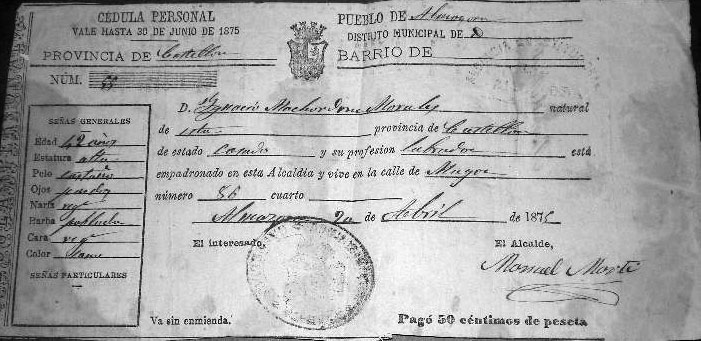 CÉDULA PERSONAL
VALE HASTA 30 DE JUNIO DE 1875
PROVINCIA DE Castellon
NÚM.
PUEBLO DE Almazora
DISTRITO MUNICIPAL DE
BARRIO DE
SEÑAS GENERALES
Edad 42 años
Estatura alta
Pelo castaño
Ojos pardos
Nariz reg
Barba poblada
Cara reg
Color sano
SEÑAS PARTICULARES
D. Ignacio Morales natural
de esta provincia de Castellon
de estado casado y su profesion labrador está
empadronado en esta Alcaldia y vive en la calle de Mayor
número 86 cuarto
Almazora 20 de Abril de 1875
El interesado,
El Alcalde,
Manuel Martí
Va sin enmienda.
Pagó 50 céntimos de peseta